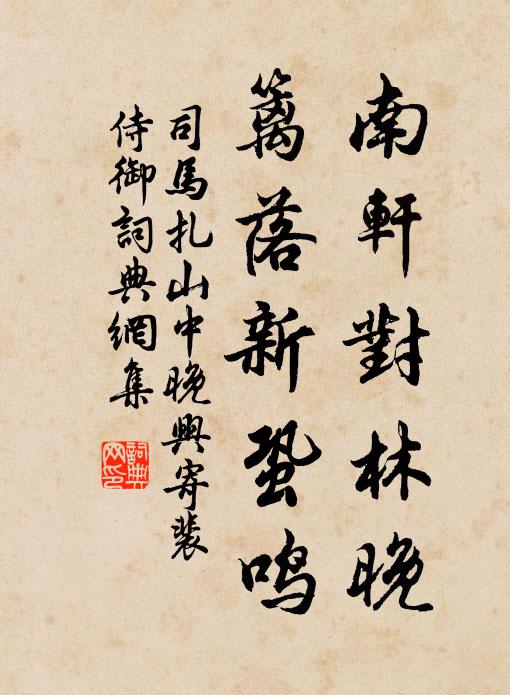 南軒對林晚
籬落新蛩鳴
司馬扎山中晚興寄裴
侍御詞典網集
詞典网印